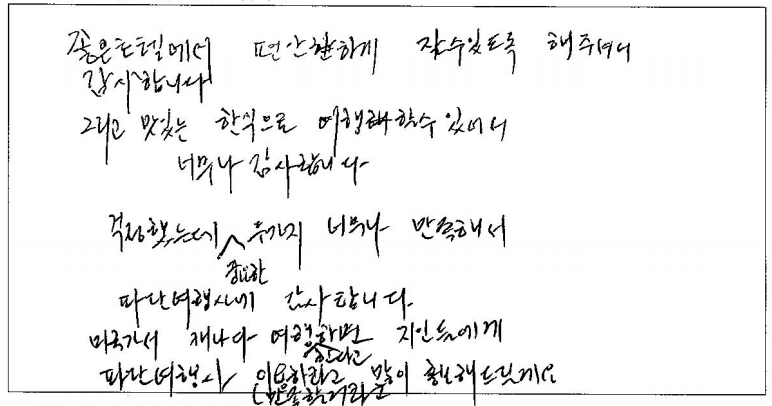 좋은 호텔에서 편안하게 잘수있도록 해주셔서
감사합니다
그리고 맛있는 한식으로 여행 할수 있어서
너무나 감사합니다
걱정했는데 두가지 너무나 만족해서
중요한
파란여행사에 감사합니다.
미국가서 캐나다 여행하면 지인들에게
한다고
파란여행사 이용하라고 많이 홍보해드릴게요